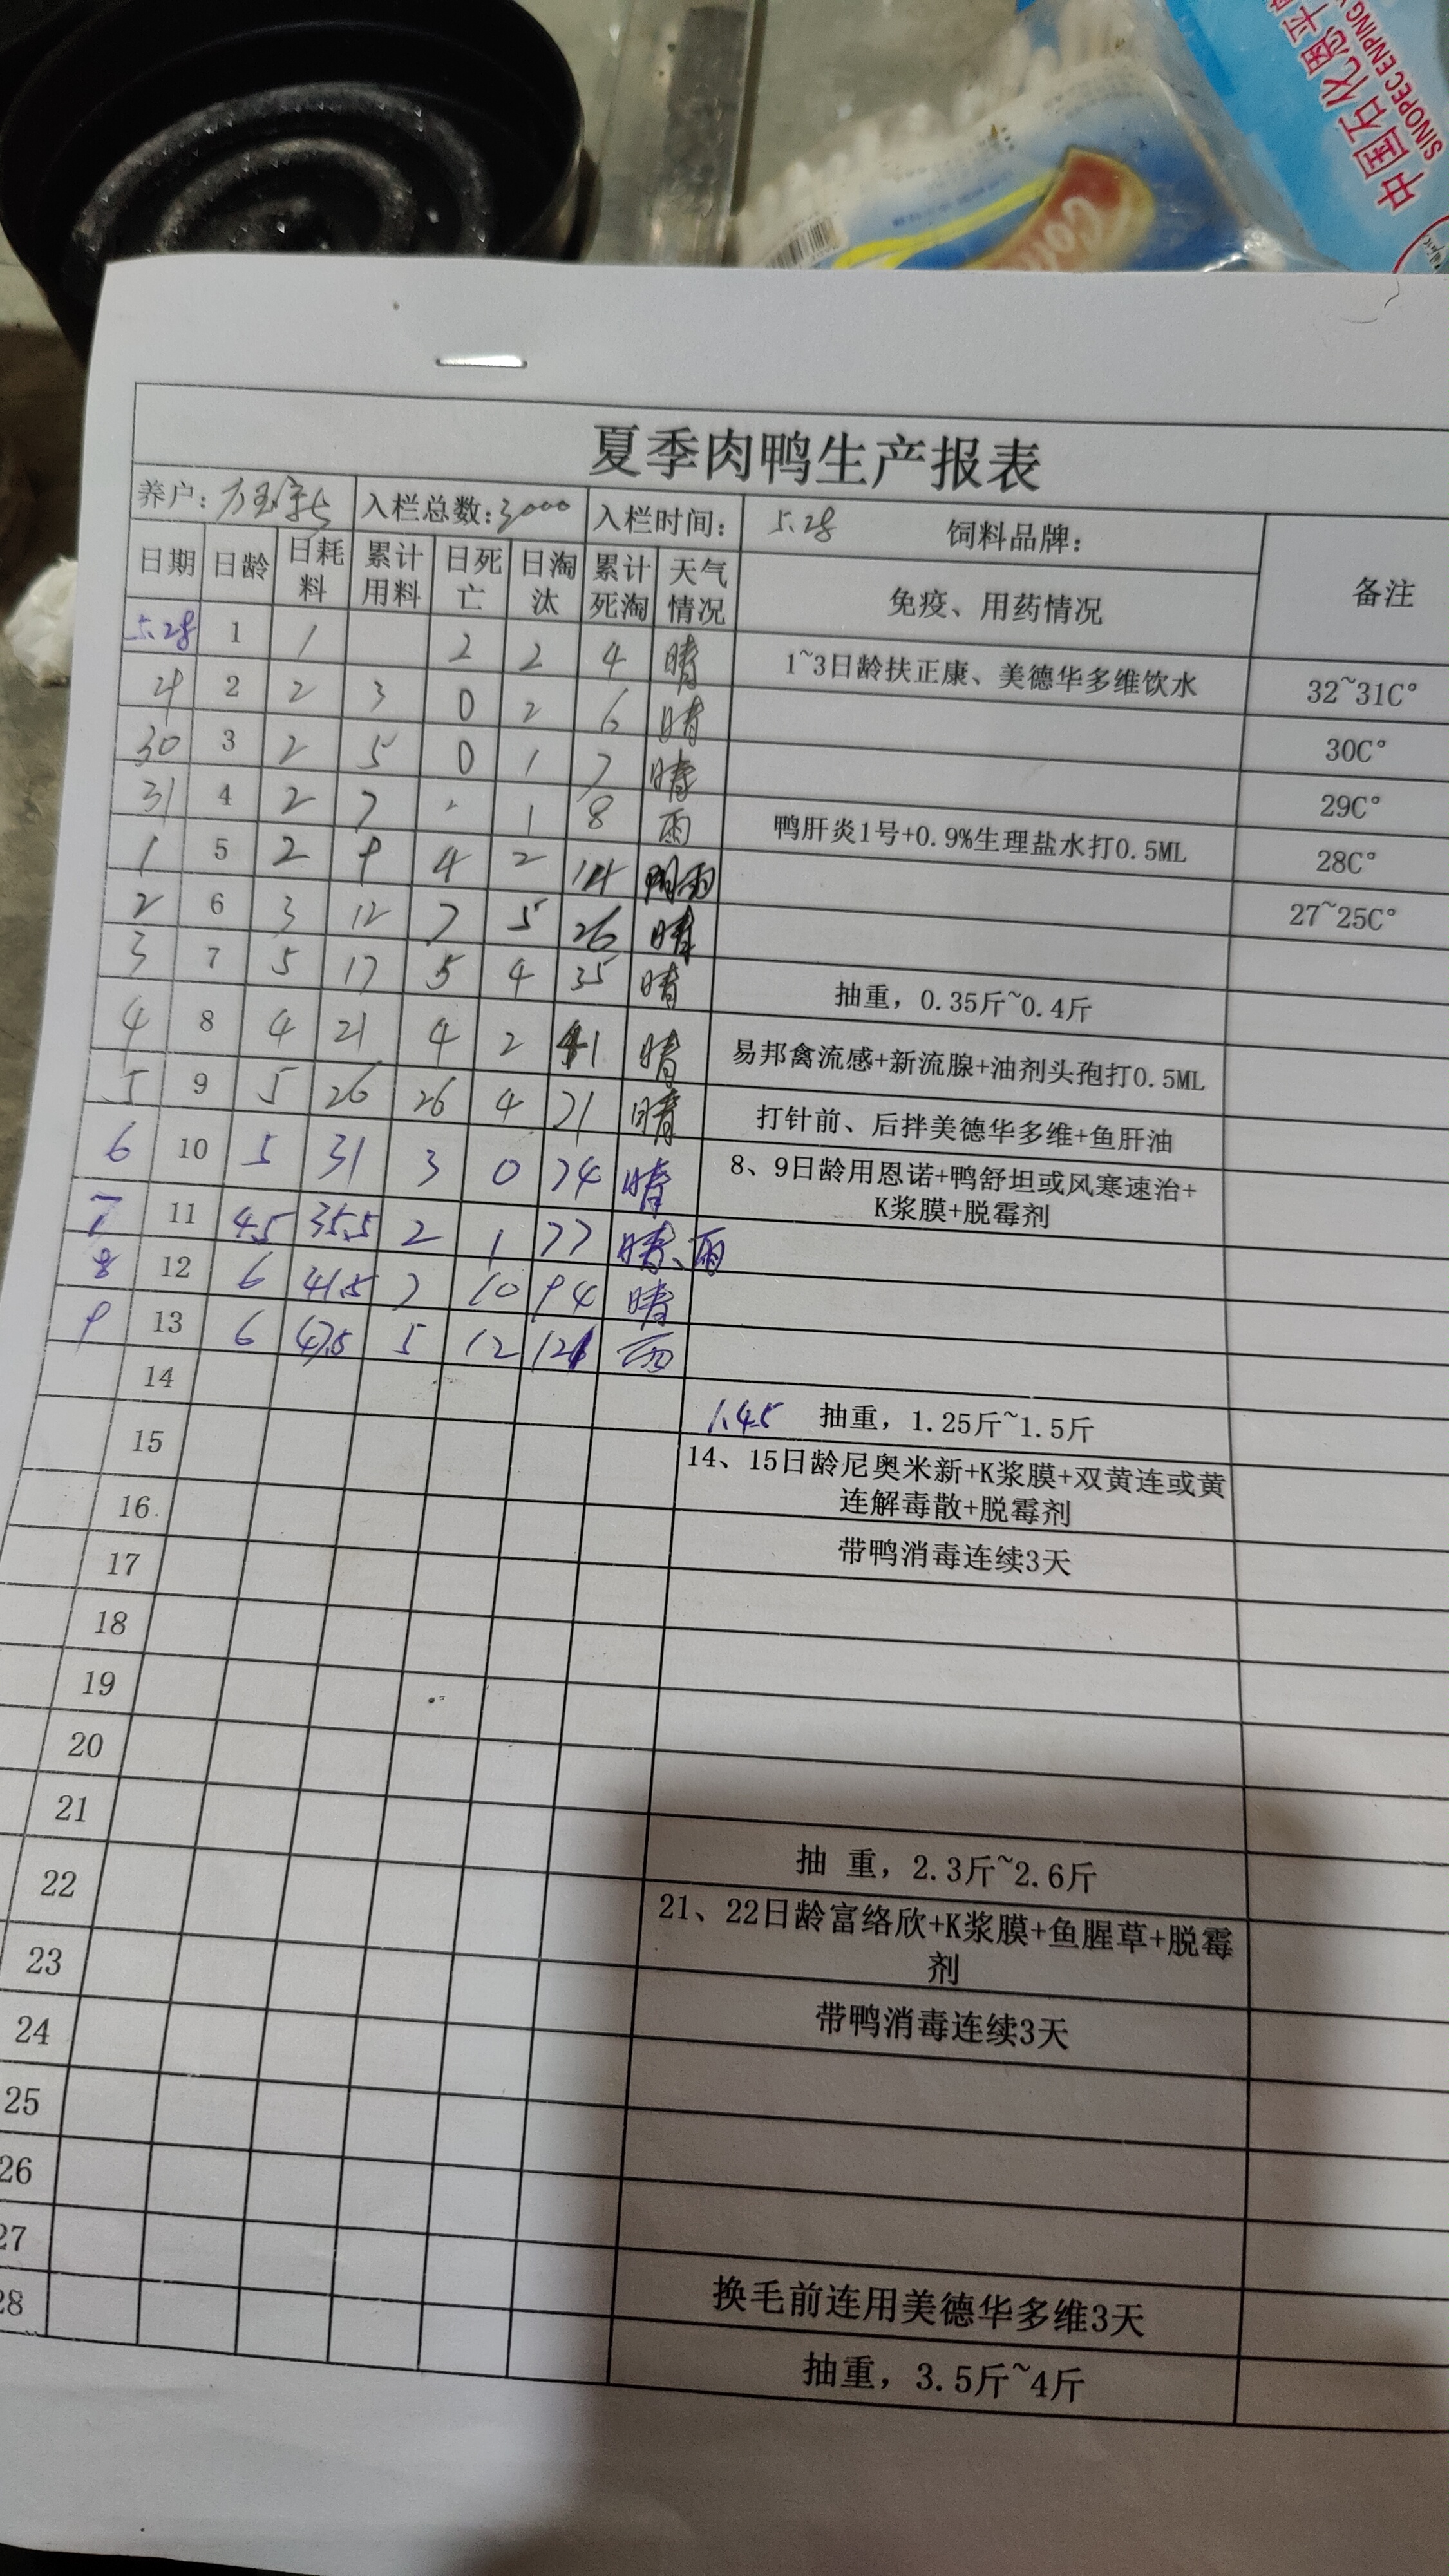 中国石化恩平
SINOPEC ENPING
夏季肉鸭生产报表
养户: 入栏总数:3000 入栏时间: 5.28 饲料品牌:
日期 日龄 日耗料 累计用料 日死亡 日淘汰 累计死淘 天气情况 免疫、用药情况 备注
5.28 1 1 2 2 4 晴 1~3日龄扶正康、美德华多维饮水 32~31C°
2 2 3 0 2 6 晴 30C°
30 3 2 5 0 1 7 晴 29C°
31 4 2 7 1 8 雨 鸭肝炎1号+0.9%生理盐水打0.5ML 28C°
1 5 2 9 4 2 14 雨 27~25C°
2 6 3 12 7 5 26 晴
3 7 5 17 5 4 35 晴 抽重，0.35斤~0.4斤
4 8 4 21 4 2 41 晴 易邦禽流感+新流腺+油剂头孢打0.5ML
5 9 5 26 26 4 71 晴 打针前、后拌美德华多维+鱼肝油
6 10 5 31 3 0 74 晴 8、9日龄用恩诺+鸭舒坦或风寒速治+
K浆膜+脱霉剂
7 11 4.5 35.5 2 1 77 晴、雨
8 12 6 41.5 7 10 94 晴
9 13 6 47.5 5 12 121 雨
14 1.45 抽重，1.25斤~1.5斤
15 14、15日龄尼奥米新+K浆膜+双黄连或黄
连解毒散+脱霉剂
16 带鸭消毒连续3天
17
18
19
20
21 抽 重，2.3斤~2.6斤
22 21、22日龄富络欣+K浆膜+鱼腥草+脱霉
剂
23 带鸭消毒连续3天
24
25
26
27 换毛前连用美德华多维3天
28 抽重，3.5斤~4斤